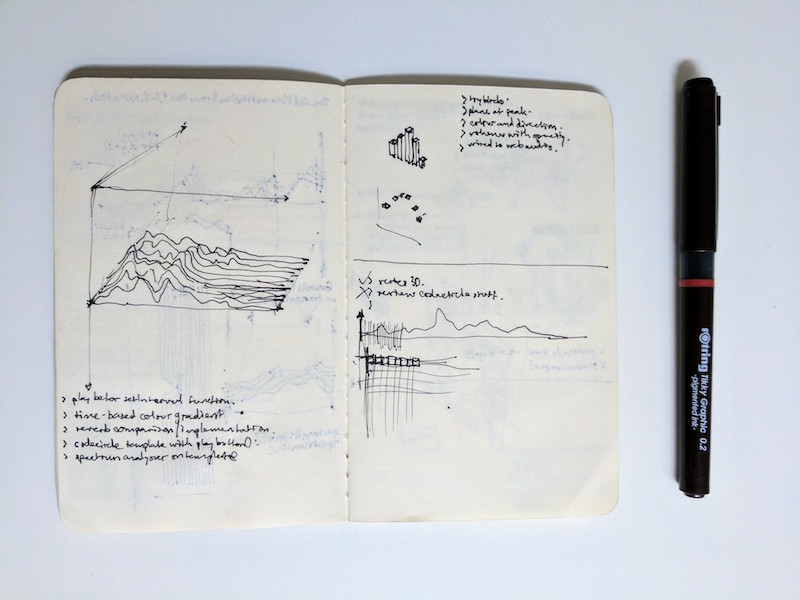 > setInterval function.
> time-based colour gradient
> reverb comparison implementation.
> codecircle template with play button
> spectrum analyser on template
> try blocks.
> plane at peak.
> colour and direction.
> volumes with opacity.
> wired to web audio.
> vertex 3D.
> review codecircle stuff.
>
rotring Tikky Graphic 0.2
·pigmented ink·